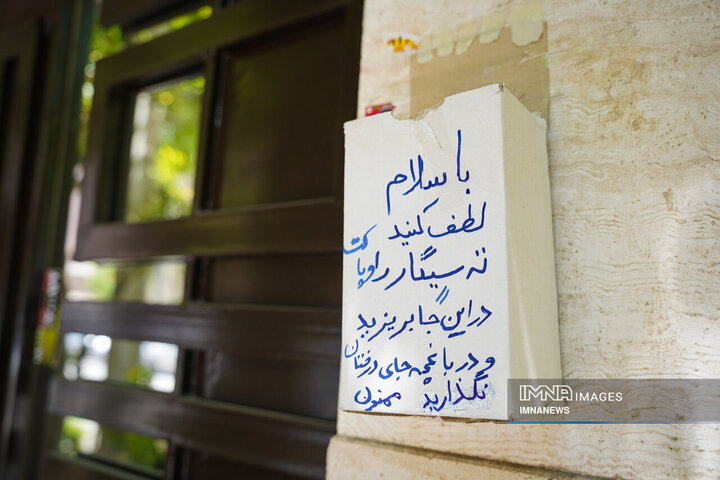 با سلام
لطف کنید
ته سیگار را و پاکت
در این جا بریزید
و در باغچه جای درختان
نگذارید ممنون
IMNA IMAGES
IMNANEWS